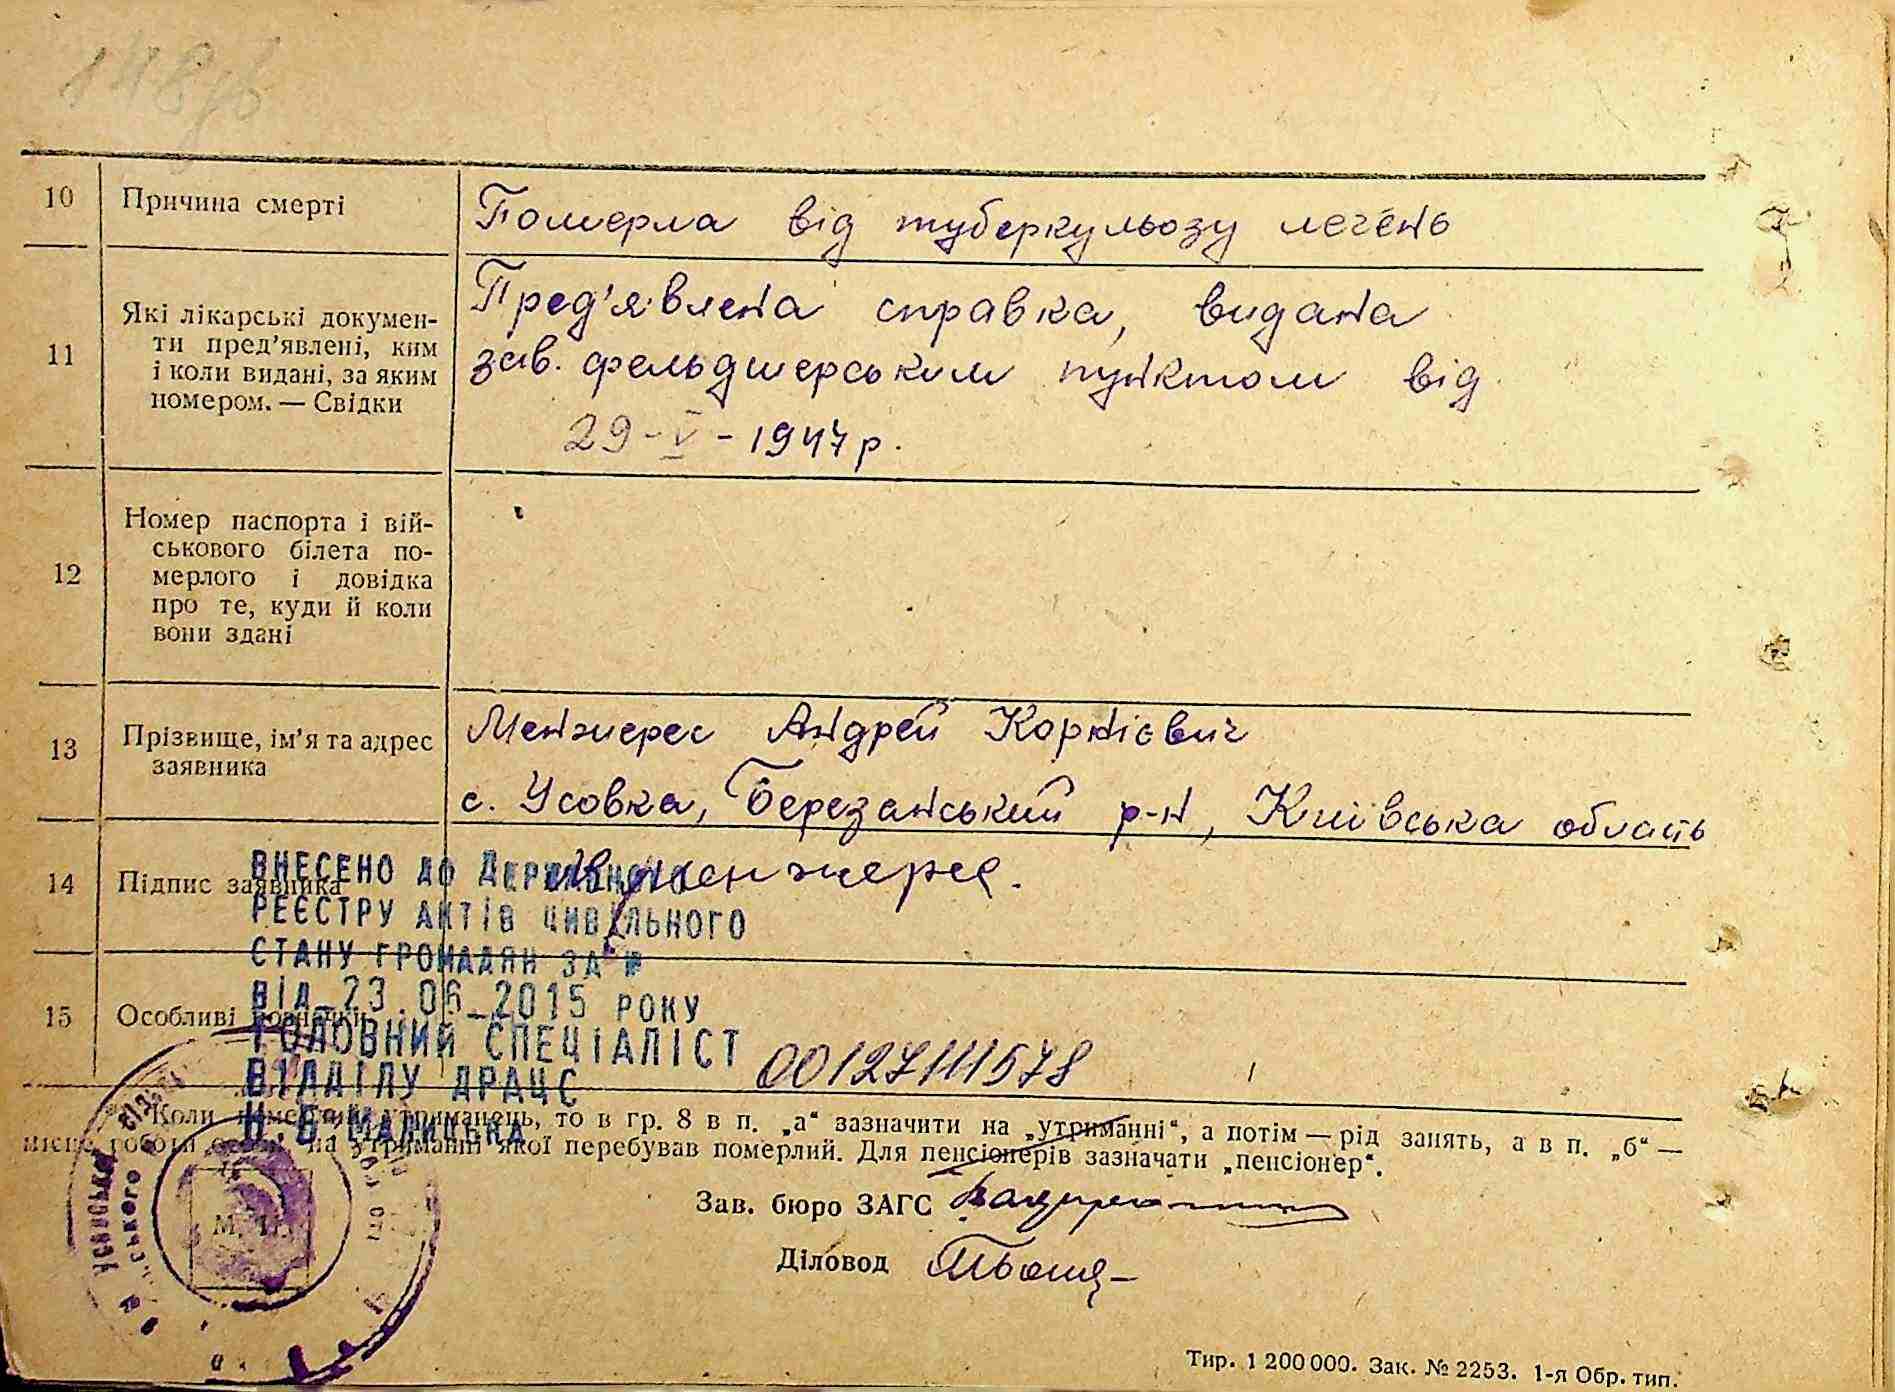 148зв
10
Причина смерті
Померла від туберкульозу легень
11
Які лікарські докумен-
ти пред'явлені, ким
і коли видані, за яким
номером. — Свідки
Пред'явлена справка, видана
зав. фельдшерським пунктом від
29-V-1947 р.
12
Номер паспорта і вій-
ськового білета по-
мерлого і довідка
про те, куди й коли
вони здані
13
Прізвище, ім'я та адрес
заявника
Менжерес Андрей Корнієвич
с. Усовка, Березанський р-н, Київська область
14
Підпис заявника
Менжерес.
ВНЕСЕНО ДО ДЕРЖАВНОГО
РЕЄСТРУ АКТІВ ЦИВІЛЬНОГО
СТАНУ ГРОМАДЯН ЗА №
ВІД 23.06.2015 РОКУ
15
Особливі
ГОЛОВНИЙ СПЕЦІАЛІСТ
ВІДДІЛУ ДРАЦС
00127111578
Коли утриманець, то в гр. 8 в п. „а“ зазначити на „утриманні“, а потім — рід занять, а в п. „б“ —
місце роботи на утриманні якої перебував померлий. Для пенсіонерів зазначати „пенсіонер“.
Зав. бюро ЗАГС
Діловод
М. П.
Тир. 1 200 000. Зак. № 2253. 1-я Обр. тип.